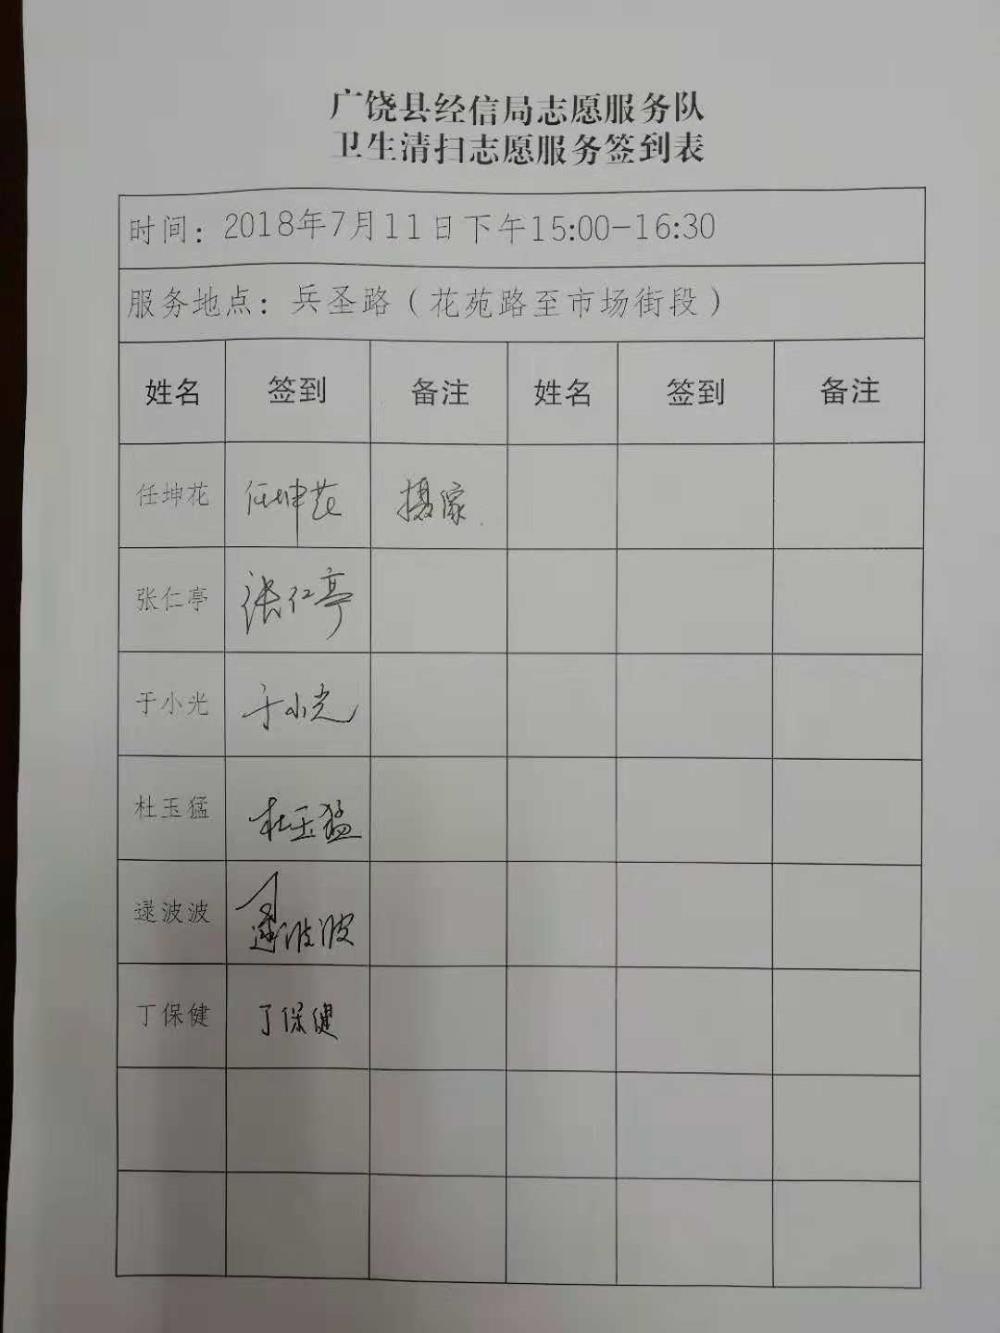 广饶县经信局志愿服务队
卫生清扫志愿服务签到表
时间：2018年7月11日下午15:00-16:30
服务地点：兵圣路（花苑路至市场街段）
姓名 签到 备注 姓名 签到 备注
任坤花 任坤花 摄像
张仁亭 张仁亭
于小光 于小光
杜玉猛 杜玉猛
逯波波 逯波波
丁保健 丁保健